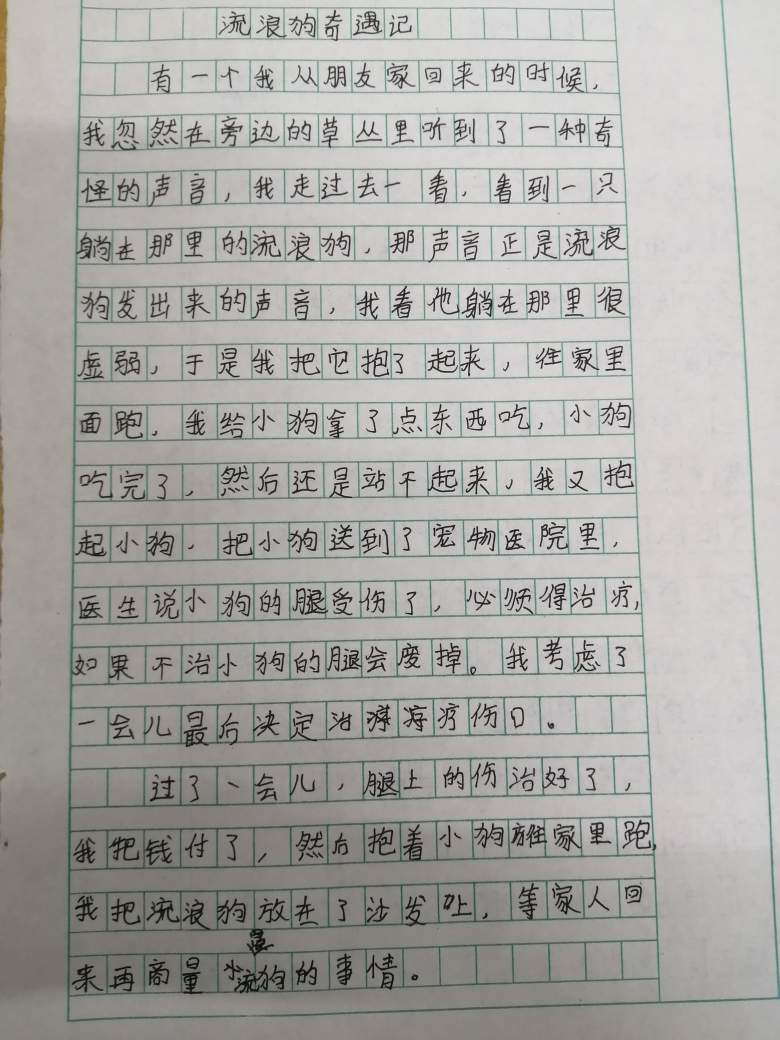 流浪狗奇遇记
有一个我从朋友家回来的时候，
我忽然在旁边的草丛里听到了一种奇
怪的声音，我走过去一看，看到一只
躺在那里的流浪狗，那声音正是流浪
狗发出来的声音，我看他躺在那里很
虚弱，于是我把它抱了起来，往家里
面跑，我给小狗拿了点东西吃，小狗
吃完了，然后还是站不起来，我又抱
起小狗，把小狗送到了宠物医院里，
医生说小狗的腿受伤了，必须得治疗，
如果不治小狗的腿会废掉。我考虑了
一会儿最后决定治疗伤口。
过了一会儿，腿上的伤治好了，
我把钱付了，然后抱着小狗往家里跑，
我把流浪狗放在了沙发上，等家人回
来再商量流浪狗的事情。